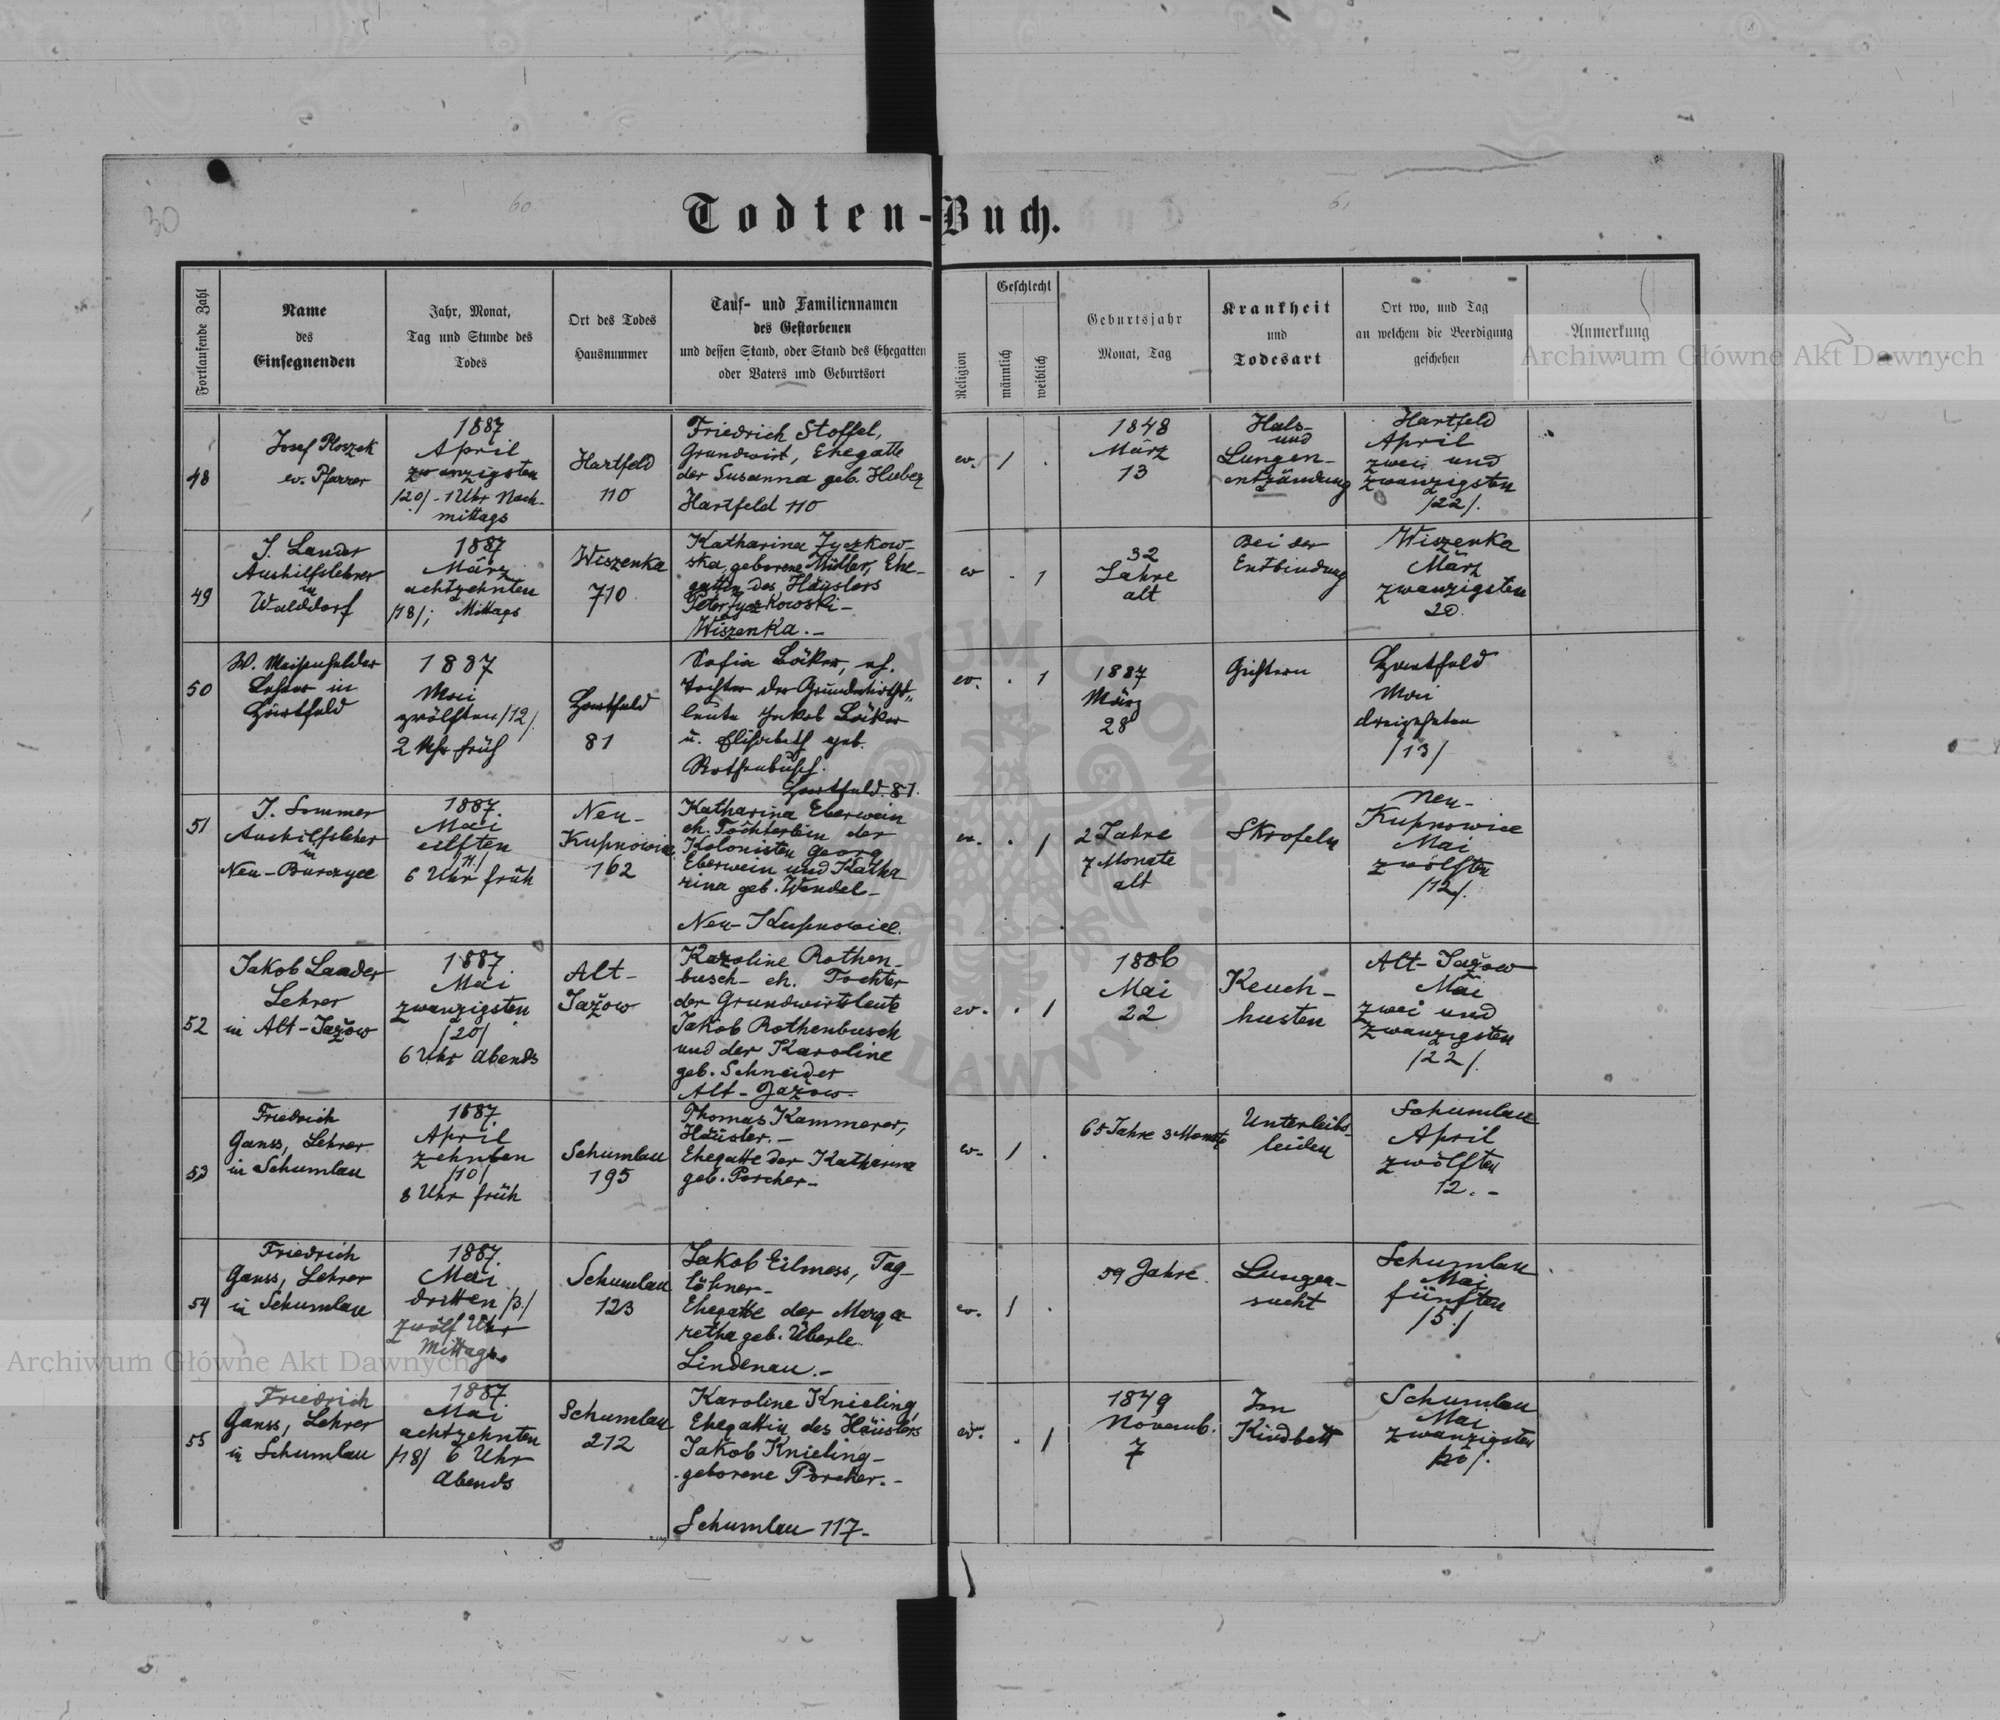 30
60.
61
Todten-Buch.
Fortlaufende Zahl
Name
des
Einsegnenden
Jahr, Monat,
Tag und Stunde des
Todes
Ort des Todes
Hausnummer
Tauf- und Familiennamen
des Gestorbenen
und dessen Stand, oder Stand des Ehegatten
oder Vaters und Geburtsort
Religion
Geschlecht
männlich
weiblich
Geburtsjahr
Monat, Tag
Krankheit
und
Todesart
Ort wo, und Tag
an welchem die Beerdigung
geschehen
Anmerkung
Archiwum Główne Akt Dawnych
48
Josef Ploszek
ev. Pfarrer
1887
April
zwanzigsten
/20/ - 1 Uhr Nach-
mittags
Hartfeld
110
Friedrich Stoffel,
Grundwirt, Ehegatte
der Susanna geb. Huber
Hartfeld 110
ev. 1 .
1848
März
13
Hals-
und
Lungen-
entzündung
Hartfeld
April
zwei und
zwanzigsten
/22/.
49
J. Lander
Aushilfslehrer
in
Walddorf
1887
März
achtzehnten
/18/; Mittags
Wiszenka
710
Katharina Zyczkow-
ska, geborene Müller, Ehe-
gattin des Häuslers
Peter Zyczkowski -
Wiszenka. -
ev . 1
32
Jahre
alt
Bei der
Entbindung
Wiszenka
März
zwanzigsten
20.
50
W. Meisenhelder
Lehrer in
Hartfeld
1887
Mai
zwölften /12/.
2 Uhr früh
Hartfeld
81
Sofia Bäker, eh.
Tochter der Grundwirths-
leute Jakob Bäker
u. Elisabeth geb.
Rothenbusch.
Hartfeld 81.
ev. . 1
1887
März
28
Gichtern
Hartfeld
Mai
dreizehnten
/13/
51
J. Sommer
Aushilfslehrer
in
Neu-Burczyce
1887.
Mai
eilften
/11./
6 Uhr früh
Neu-
Kupnowice
162
Katharina Eberwein
eh. Töchterlein der
Kolonisten Georg
Eberwein und Katha
rina geb. Wendel -
Neu-Kupnowice.
ev. . 1
2 Jahre
7 Monate
alt
Skrofeln
Neu-
Kupnowice
Mai
zwölften
/12/.
52
Jakob Lander
Lehrer
in Alt-Jažow
1887.
Mai
zwanzigsten
/20/
6 Uhr Abends
Alt-
Jažow
Karoline Rothen-
busch - eh. Tochter
der Grundwirtsleute
Jakob Rothenbusch
und der Karoline
geb. Schneider
Alt-Jažow.
ev. . 1
1886
Mai
22
Keuch-
husten
Alt-Jažow
Mai
zwei und
zwanzigsten
/22/.
53
Friedrich
Ganss, Lehrer
in Schumlau
1887.
April
zehnten
/10/
8 Uhr früh
Schumlau
195
Thomas Kammerer,
Häusler. -
Ehegatte der Katharina
geb. Porcher -
ev. 1 .
65 Jahre 3 Monate
Unterleibs-
leiden
Schumlau
April
zwölften
12. -
54
Friedrich
Ganss, Lehrer
in Schumlau
1887.
Mai
dritten /3./
zwölf Uhr
Mittags.
Schumlau
123
Jakob Eilmess, Tag-
löhner -
Ehegatte der Marga
retha geb. Überle
Lindenau. -
ev. 1 .
59 Jahre.
Lungen-
sucht
Schumlau
Mai
fünften
/5./
Archiwum Główne Akt Dawnych
55
Friedrich
Ganss, Lehrer
in Schumlau
1887.
Mai
achtzehnten
/18/ 6 Uhr
Abends
Schumlau
212
Karoline Knieling,
Ehegattin des Häuslers
Jakob Knieling -
geborene Porcher. -
Schumlau 117 -
ev. . 1
1849
Novemb.
7
Im
Kindbett
Schumlau
Mai
zwanzigsten
/20/.